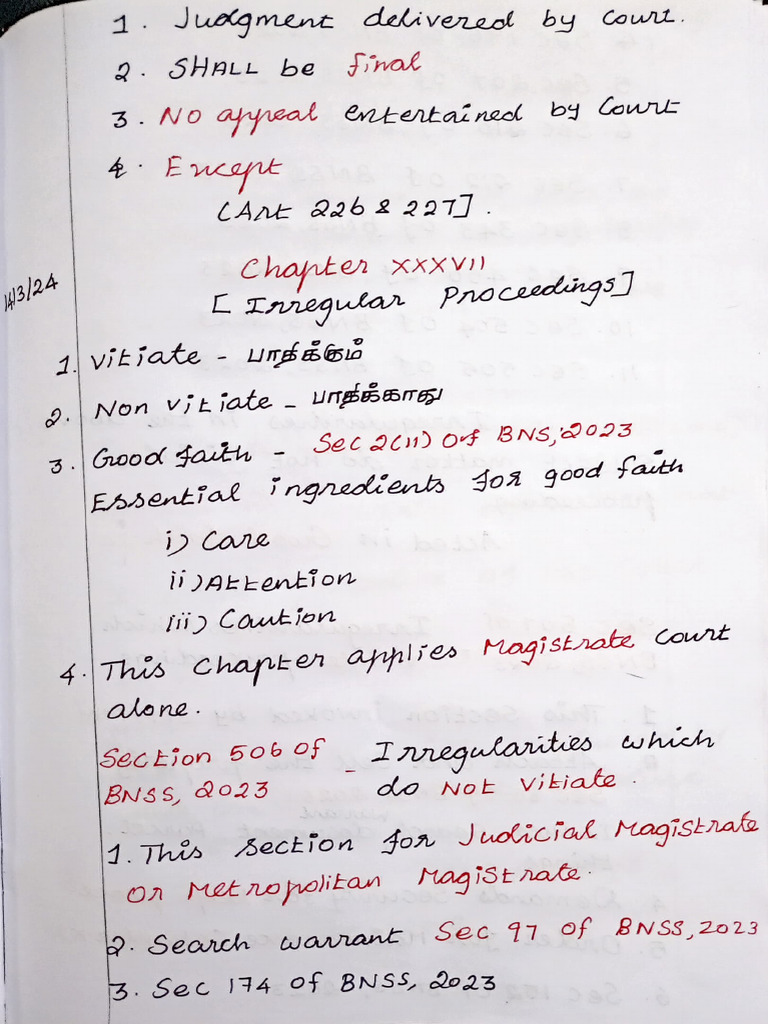 1. Judgment delivered by court.
2. SHALL be final
3. No appeal entertained by Court
4. Except
[Art 226 & 227].
Chapter XXXVII
14/3/24
[Irregular Proceedings]
1. Vitiate - பாதிக்கும்
2. Non vitiate - பாதிக்காது
3. Good faith - Sec 2(11) Of BNS, 2023
Essential ingredients for good faith
i) Care
ii) Attention
iii) Caution
4. This Chapter applies Magistrate Court
alone.
Section 506 of - Irregularities which
BNSS, 2023 do Not vitiate.
1. This section for Judicial Magistrate
Or Metropolitan Magistrate.
2. Search warrant Sec 97 of BNSS, 2023
3. Sec 174 of BNSS, 2023